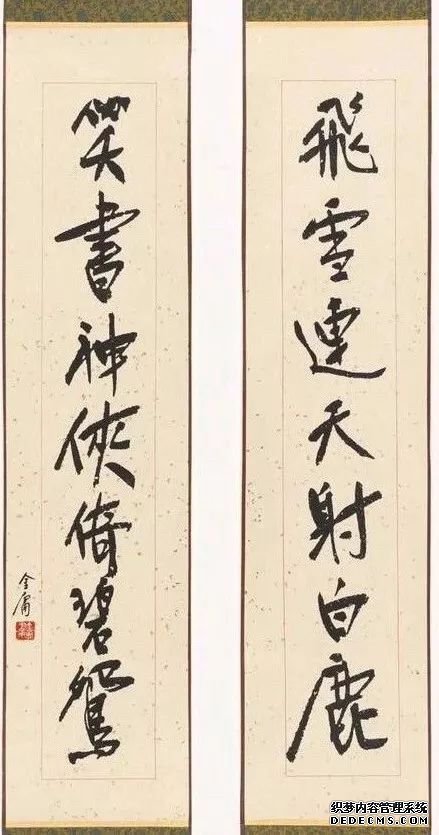 飛雪連天射白鹿
笑書神俠倚碧鴛
金庸
织梦内容管理系统
DEDECMS.COM